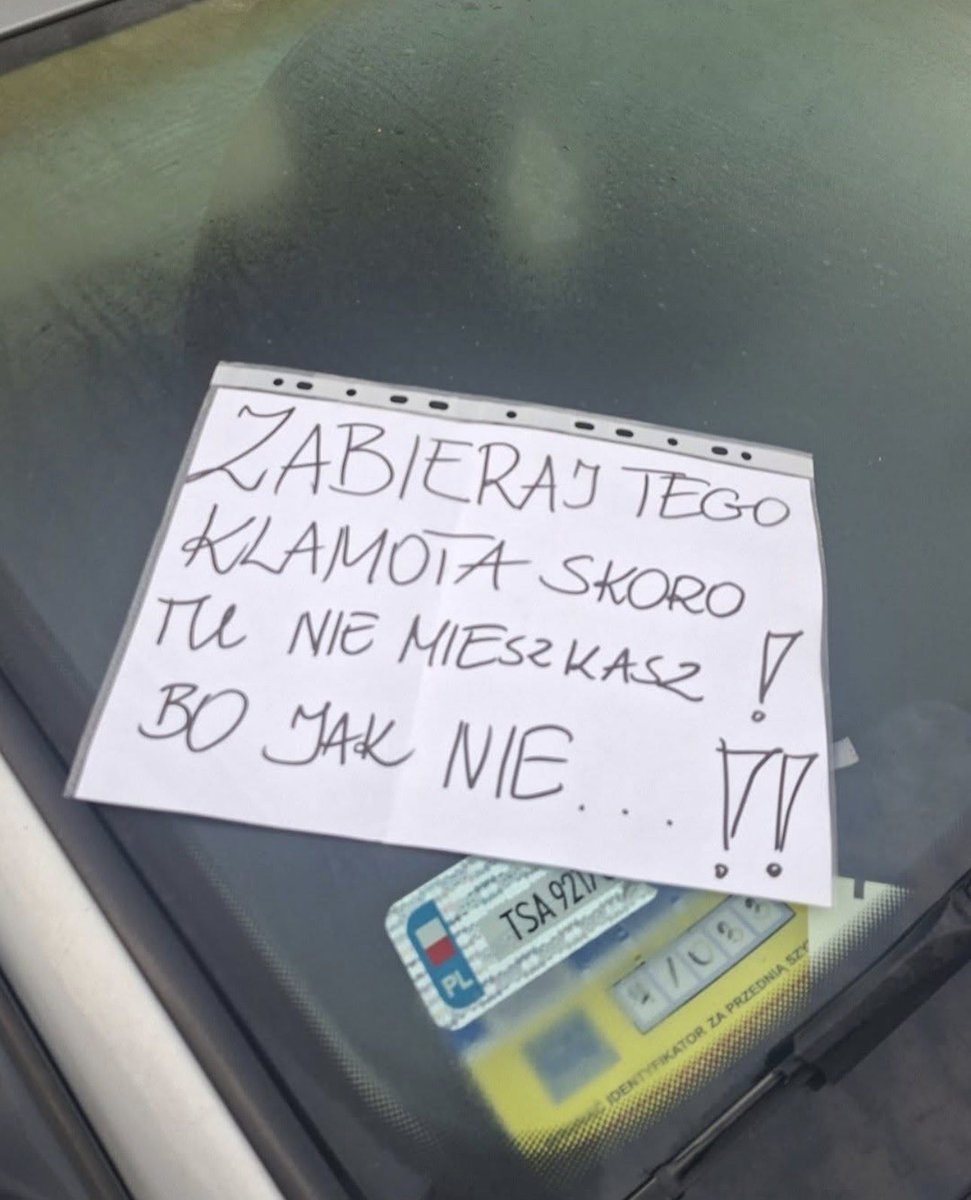 ZABIERAJ TEGO
KLAMOTA SKORO
TU NIE MIESZKASZ !
BO JAK NIE.... !!
PL
TSA
IDENTYFIKATOR ZA PRZEDNIĄ